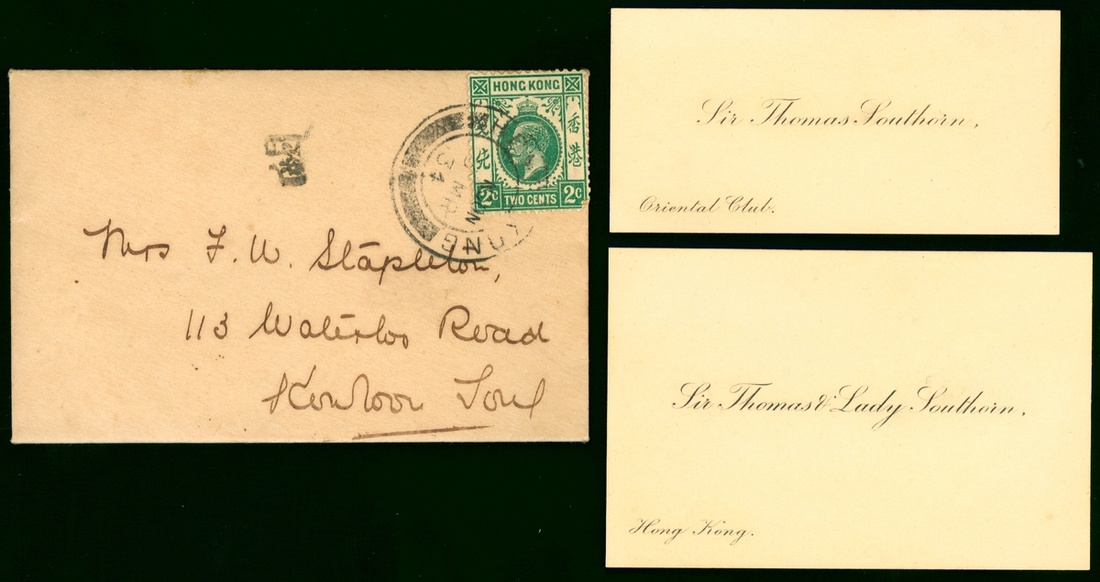 HONG KONG
香港
TWO CENTS
2C 2C
HONG KONG
MR
34
Mrs F. W. Stapleton,
113 Waterloo Road
Kowloon Tong
Sir Thomas Southorn,
Oriental Club.
Sir Thomas & Lady Southorn,
Hong Kong.